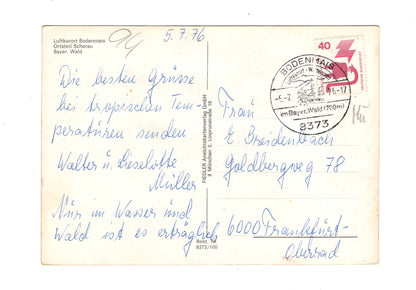 Luftkurort Bodenmais
Ortsteil Scherau
Bayer. Wald
5.7.76
Die besten Grüsse
bei tropischen Tem-
peraturen senden
Walter u. Liselotte
Müller
Nur im Wasser und
Wald ist es erträglich
FIEDLER Ansichtskartenverlag GmbH
8 München 2, Linprunstraße 10
Best. Nr.
8373/100
40
BODENMAIS
im Bayer. Wald (700m)
8373
Frau
E. Breidenbach
Goldbergweg 78
6000 Frankfurt-
Oberrad